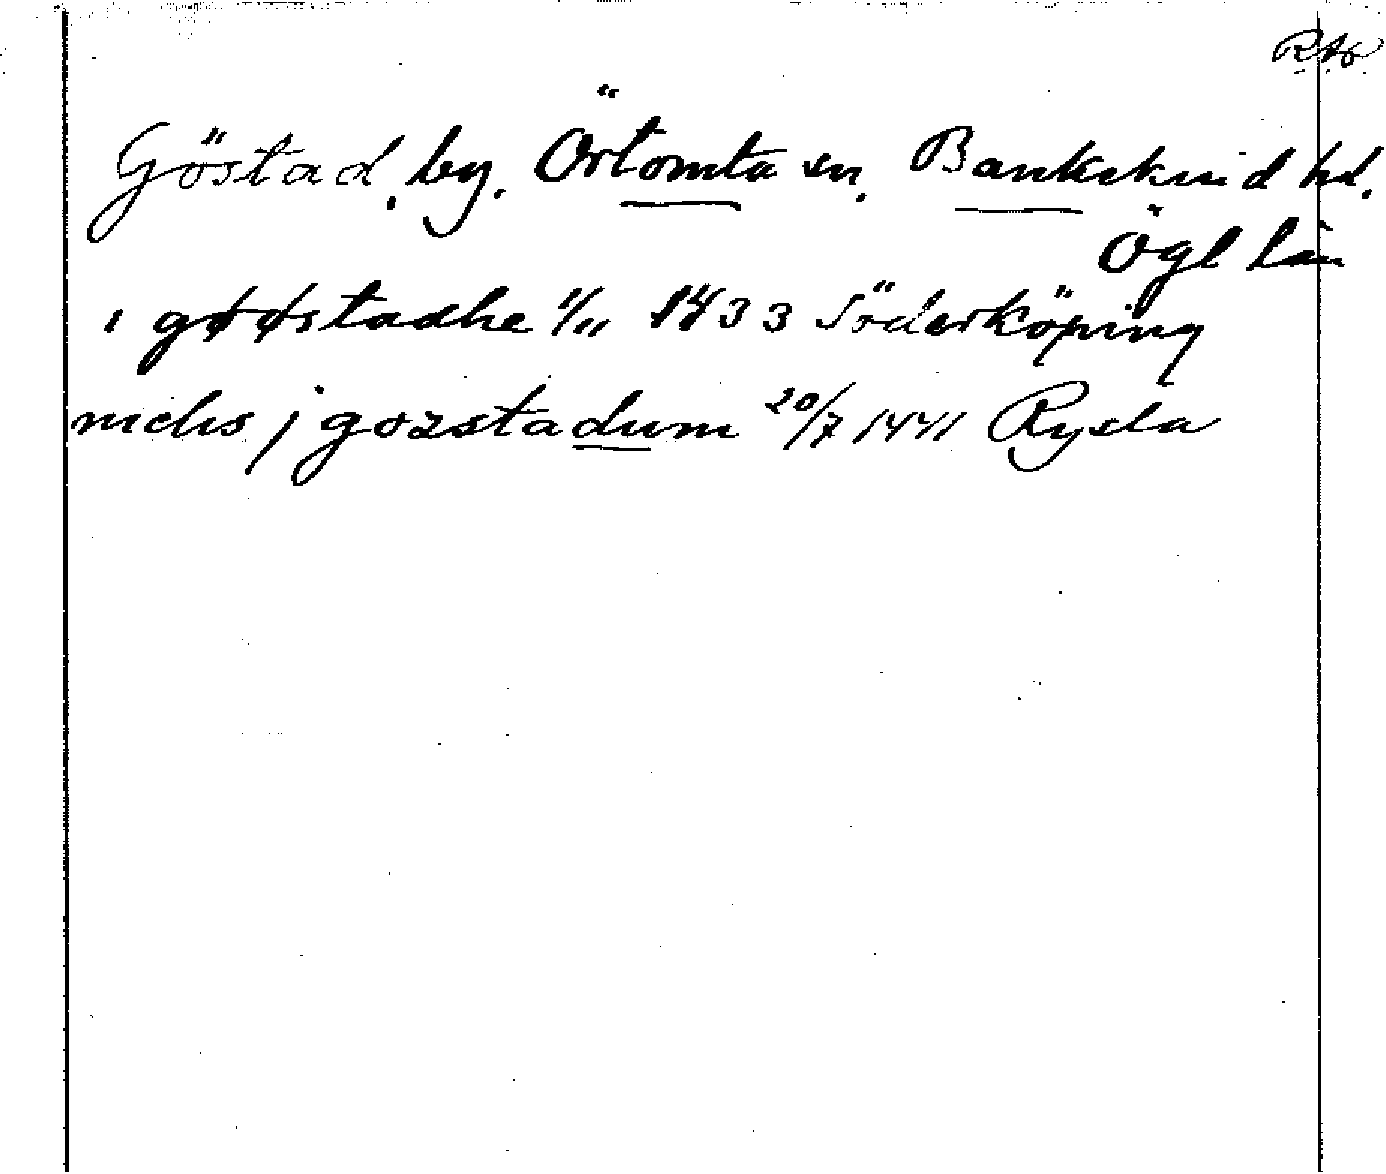 RAP
Göstad, by. Örtomta sn. Bankekind hd.
Ögl län
i gøøstadhe 1/11 1433 Söderköping
nichs j gozstadum 20/7 1441 Rysla